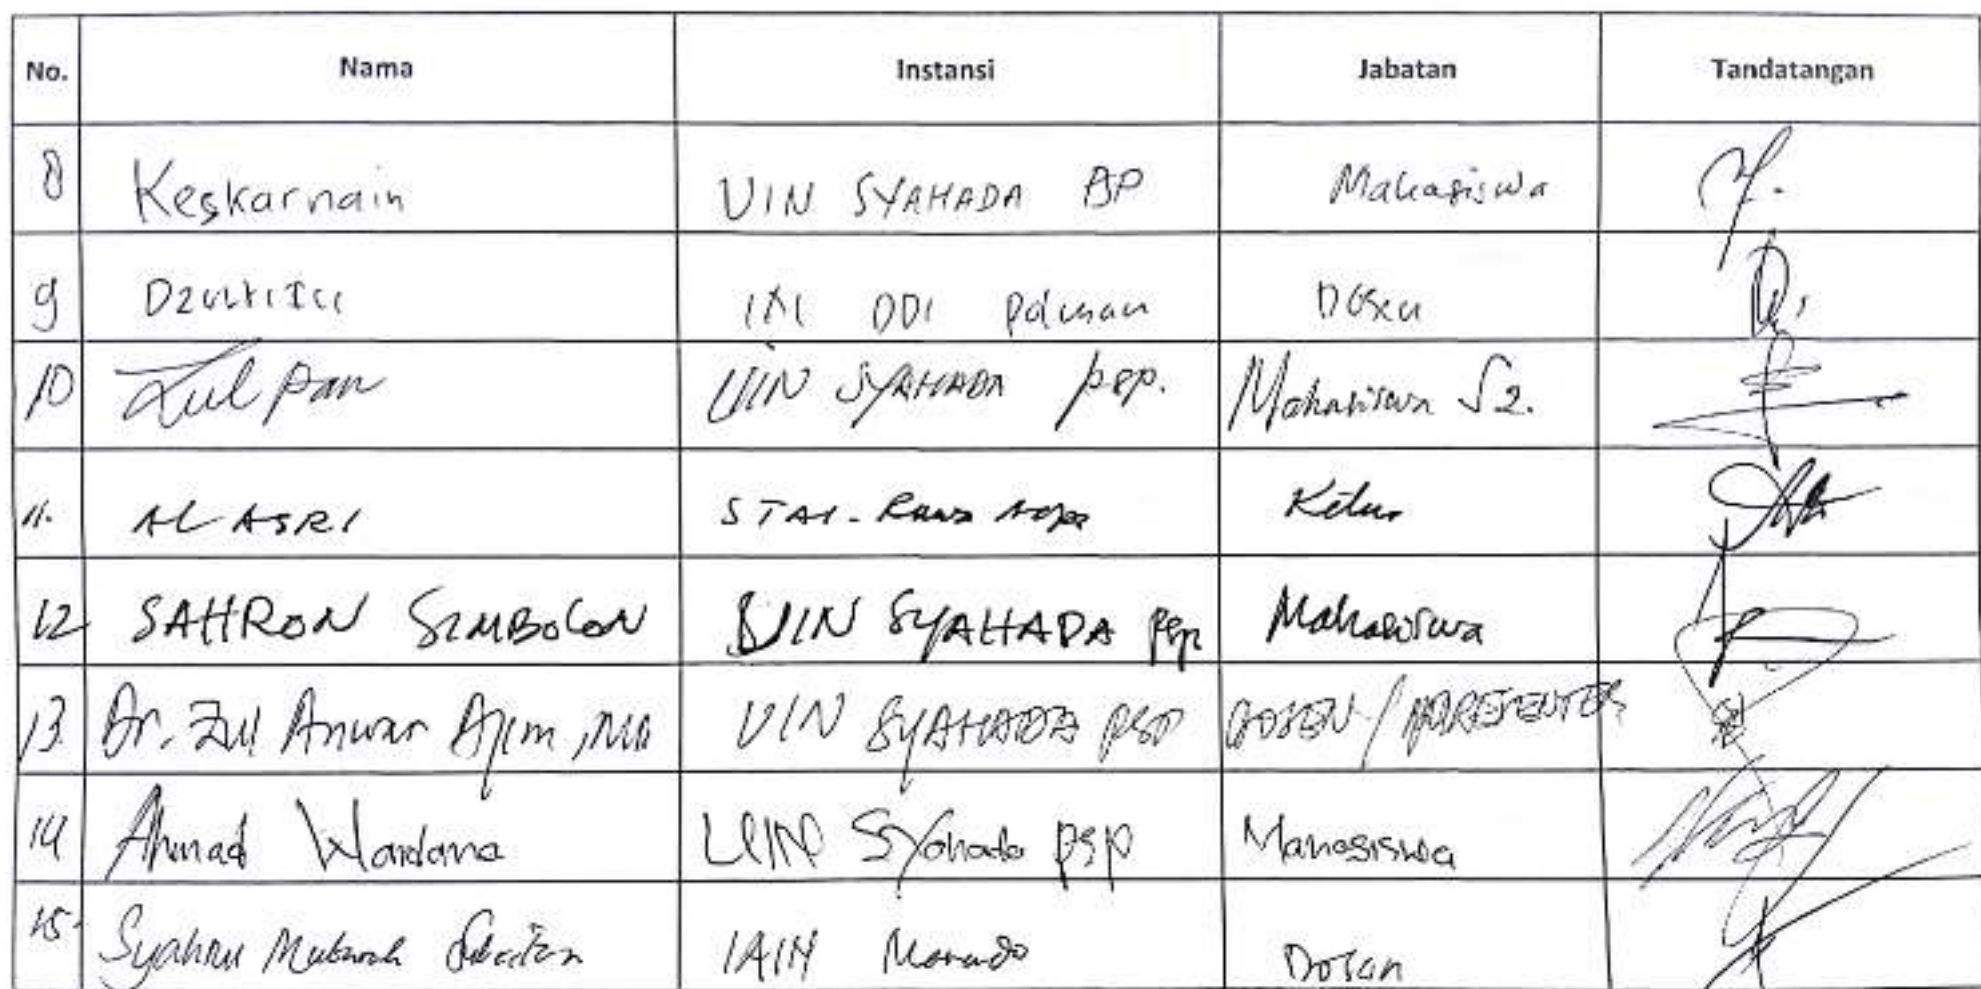 No. Nama Instansi Jabatan Tandatangan
8 Keskarnain UIN SYAHADA PSP Mahasiswa
9 DDI
10 Zulpan UIN SYAHADA psp. Mahasiswa S2.
11. AL ASRI STAI- Ketua
12 SAHRON SIMBOLON UIN SYAHADA psp Mahasiswa
13. Dr. Zul Anwar Ajim, MA UIN SYAHADA PSP DOSEN / PRESENTER
14 Ahmad Wardana UIN Syahada psp Mahasiswa
15. Syahrul Mubarak IAIN Manado Dosen